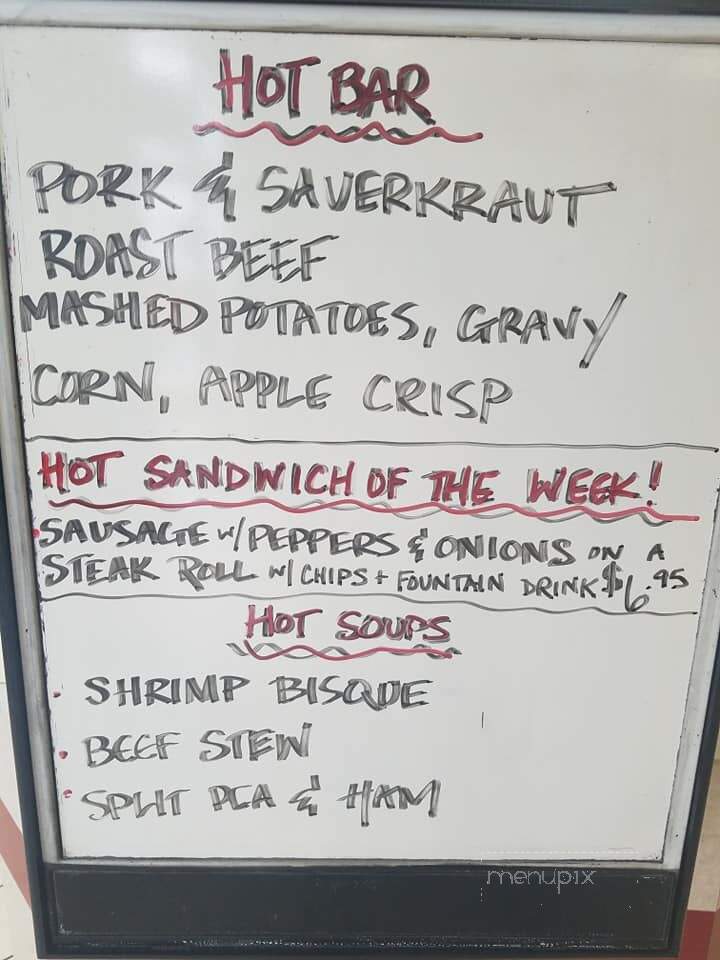 HOT BAR
PORK & SAUERKRAUT
ROAST BEEF
MASHED POTATOES, GRAVY
CORN, APPLE CRISP
HOT SANDWICH OF THE WEEK!
SAUSAGE W/PEPPERS & ONIONS ON A
STEAK ROLL W/ CHIPS + FOUNTAIN DRINK $6.95
HOT SOUPS
• SHRIMP BISQUE
• BEEF STEW
• SPLIT PEA & HAM
menupix